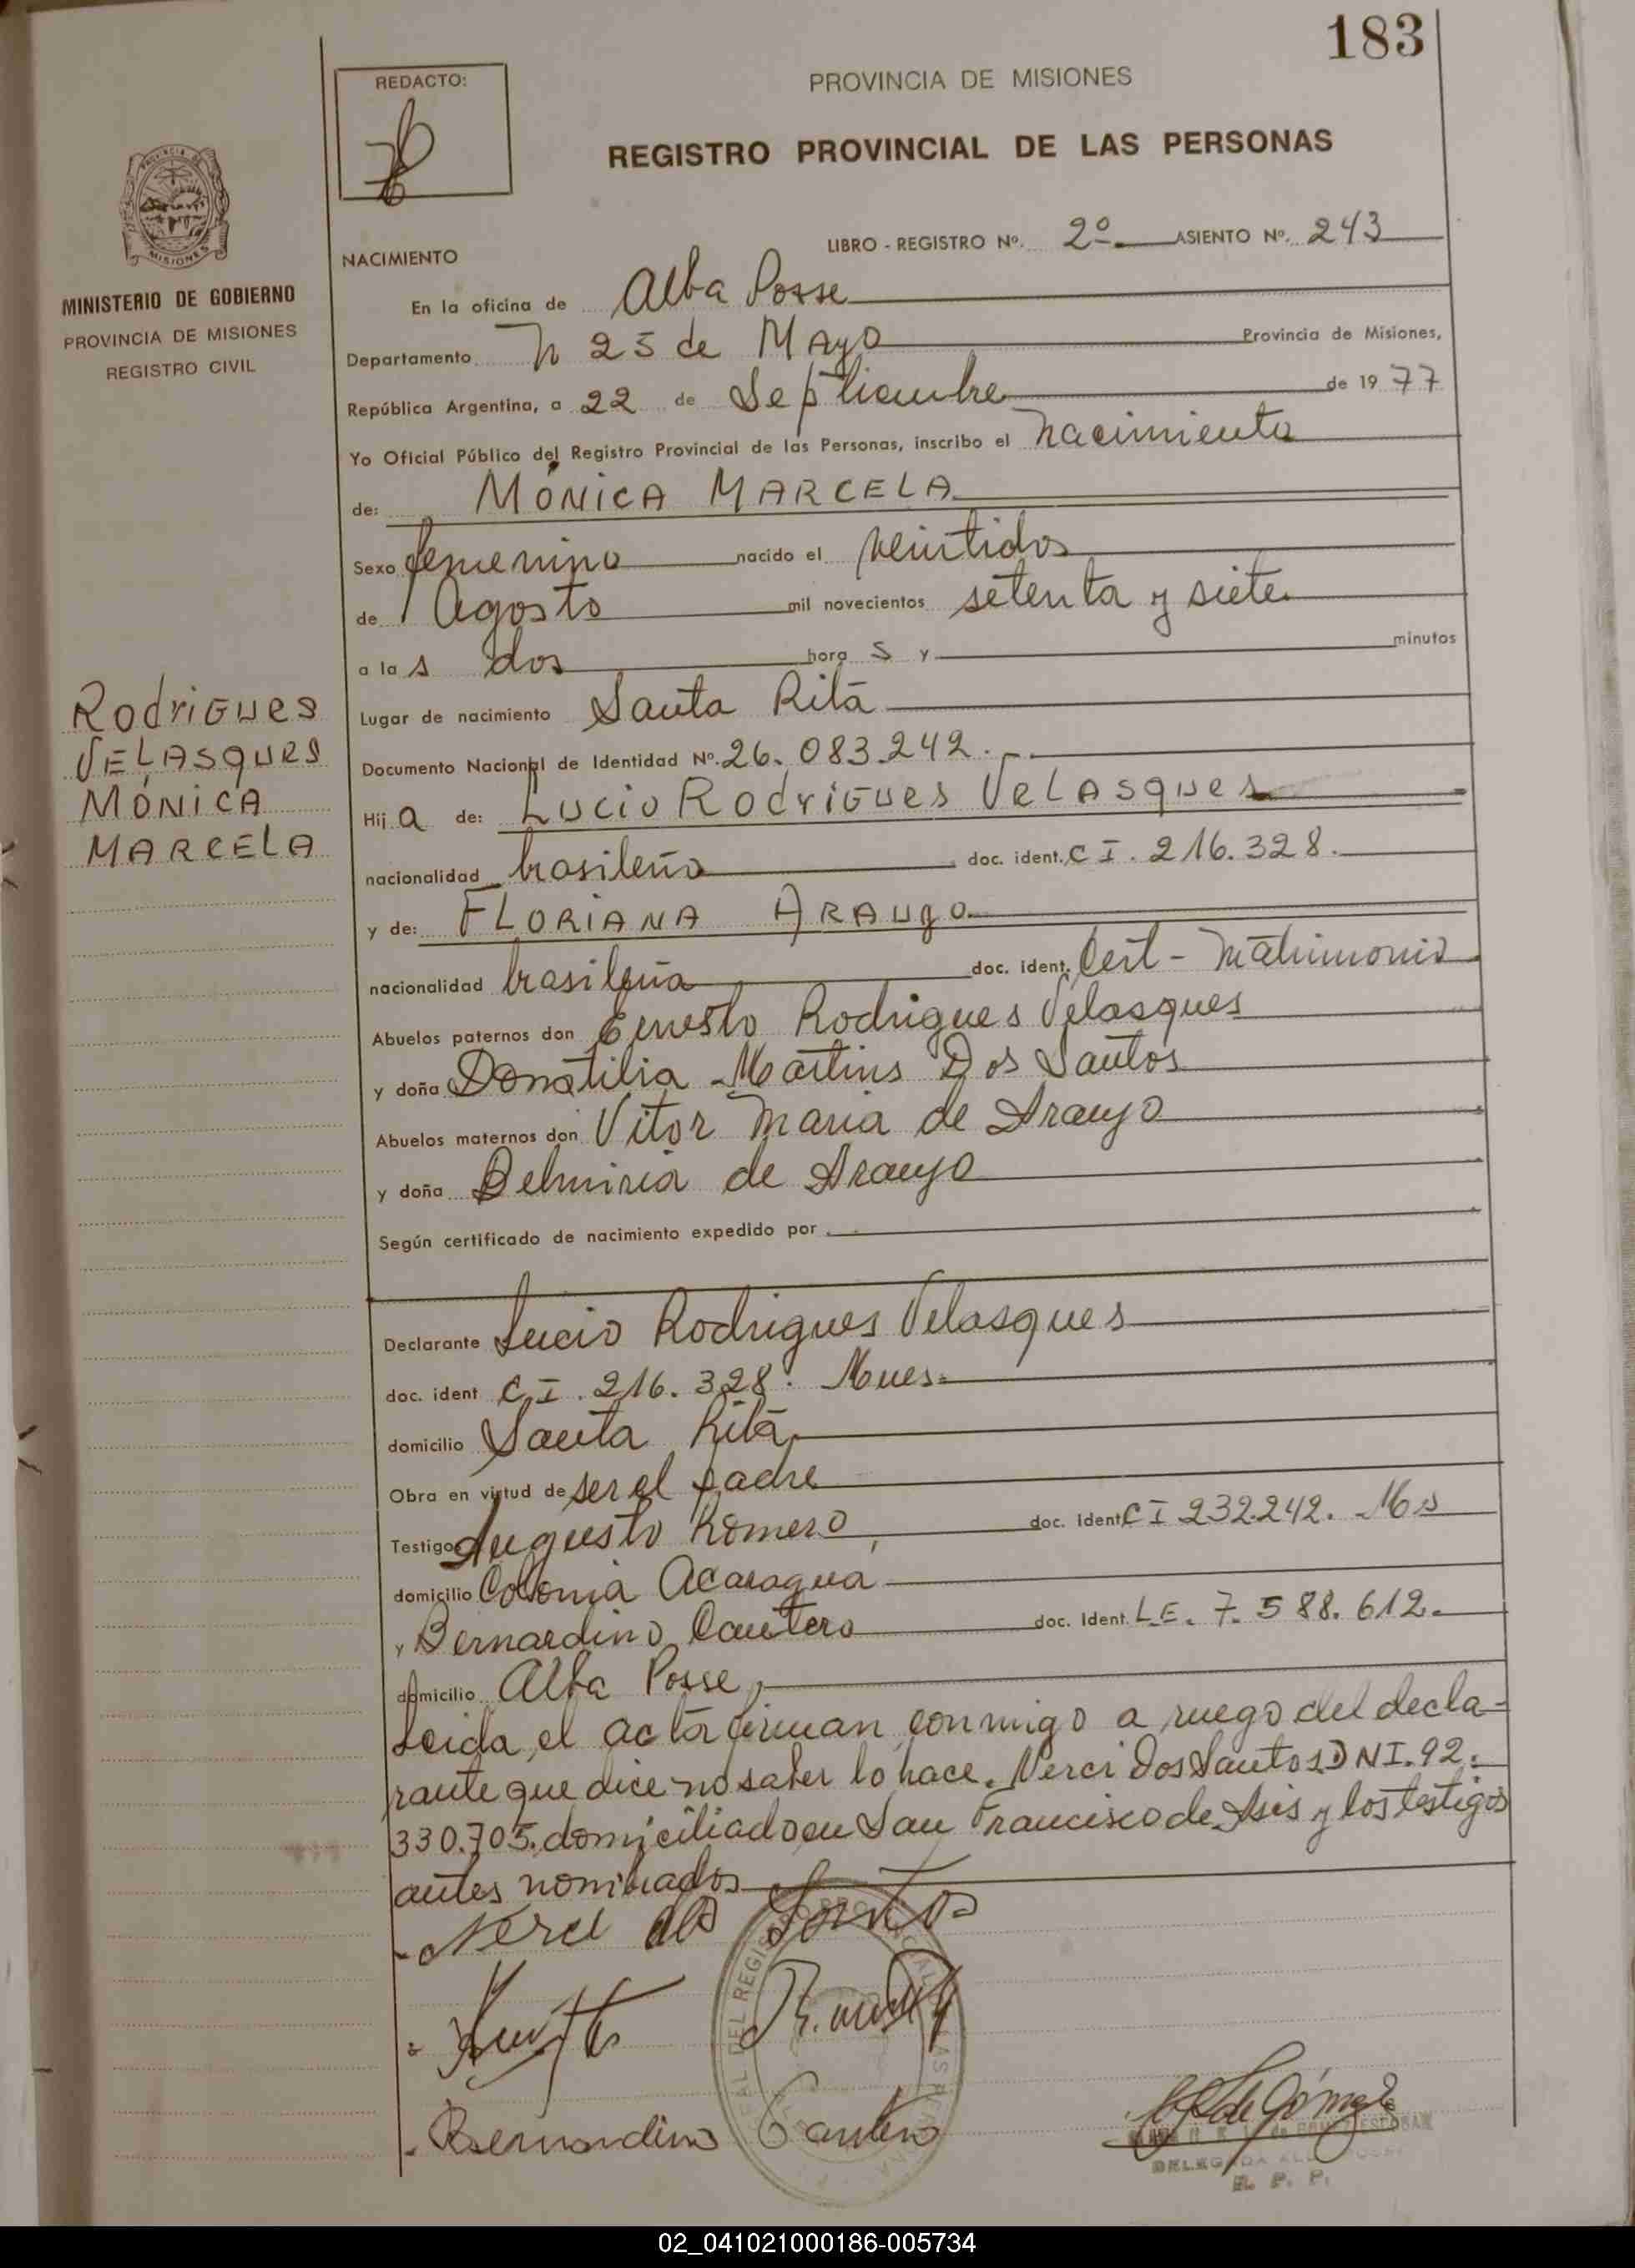 183
REDACTO:
PROVINCIA DE MISIONES
REGISTRO PROVINCIAL DE LAS PERSONAS
PROVINCIA DE
MISIONES
MINISTERIO DE GOBIERNO
PROVINCIA DE MISIONES
REGISTRO CIVIL
LIBRO - REGISTRO Nº. 2º ASIENTO Nº. 243
NACIMIENTO
En la oficina de Alba Posse
Departamento 25 de Mayo Provincia de Misiones,
República Argentina, a 22 de Septiembre de 1977
Yo Oficial Público del Registro Provincial de las Personas, inscribo el nacimiento
de: MÓNICA MARCELA
Sexo femenino nacido el veintidos
de Agosto mil novecientos setenta y siete
a las dos horas y minutos
Lugar de nacimiento Santa Rita
Documento Nacional de Identidad Nº. 26.083.242.
Hija de: Lucio Rodrigues Velasques
nacionalidad brasileña doc. ident. C I. 216.328.
y de: FLORIANA ARAUJO
nacionalidad brasileña doc. ident. Cert - Matrimonio
Abuelos paternos don Ernesto Rodrigues Velasques
y doña Donatilia Martins Dos Santos
Abuelos maternos don Vitor Maria de Araujo
y doña Belmiria de Araujo
Según certificado de nacimiento expedido por
Rodrigues
VELASQUES
MÓNICA
MARCELA
Declarante Lucio Rodrigues Velasques
doc. ident C.I. 216.328. Mnes.
domicilio Santa Rita,
Obra en virtud de ser el padre
Testigo Augusto Romero, doc. Ident C I 232.242. Ms
domicilio Colonia Acaragua
y Bernardino Cantero doc. Ident. L.E. 7.588.612.
domicilio Alba Posse,
Leida el acta firman conmigo a ruego del decla-
rante que dice no saber lo hace. Nerci Dos Santos D N I. 92.
330.705. domiciliado en San Francisco de Asis y los testigos
antes nominados
Nerci dos Santos
Bernardino Cantero
DEL REGISTRO PROVINCIAL DE LAS PERSONAS
de Gómez
ESCOBAR
DELEGADA ALBA POSSE
R. P. P.
02_041021000186-005734